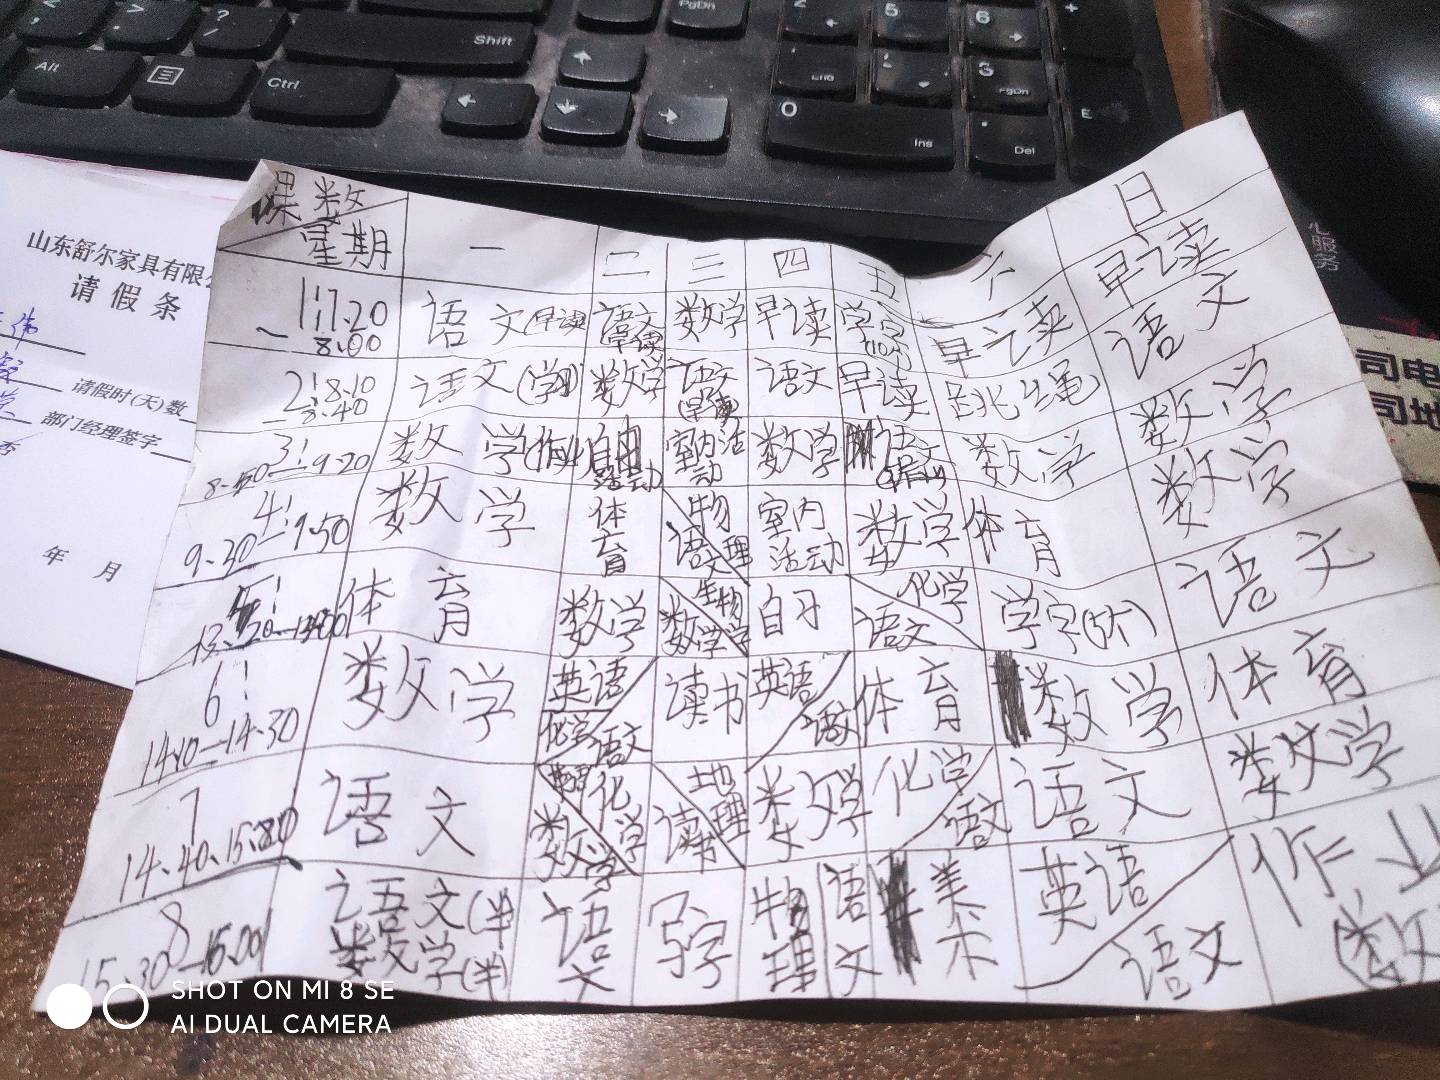 Shift
PgDn
Alt
Ctrl
5
6
3
PgDn
0
Ins
Del
山东舒尔家具有限
请假条
请假时(天)数
部门经理签字
年 月
心服务
司电
司地
课数
星期
一 二 三 四 五 六 日
1:7.20
-8.00
语文(早读) 语文早读 数学 早读 学字 早读 早读
2:8.10
-8.40
语文(学习) 数学 语文(早读) 语文 早读 跳绳 语文
3:
8.50-9.20
数学(作业) 自由活动 室内活动 数学 语文 数学 数学
4:
9.30-9.50
数学 体育 物理 语文 室内活动 数学 体育 数学
5:
体育 数学 生物 数学 自习 化学 语文 学字(5个) 语文
6:
14.10-14.30
数学 英语 化学 语文 读书 英语 语文 体育 数学 体育
7
14.40
语文 化学 数学 地理 读书 数学 化学 语文 语文 数学
8
15.30-16.00
语文(半) 数学(半) 语文 写字 物理 语文 美术 英语 语文 作业(数
SHOT ON MI 8 SE
AI DUAL CAMERA